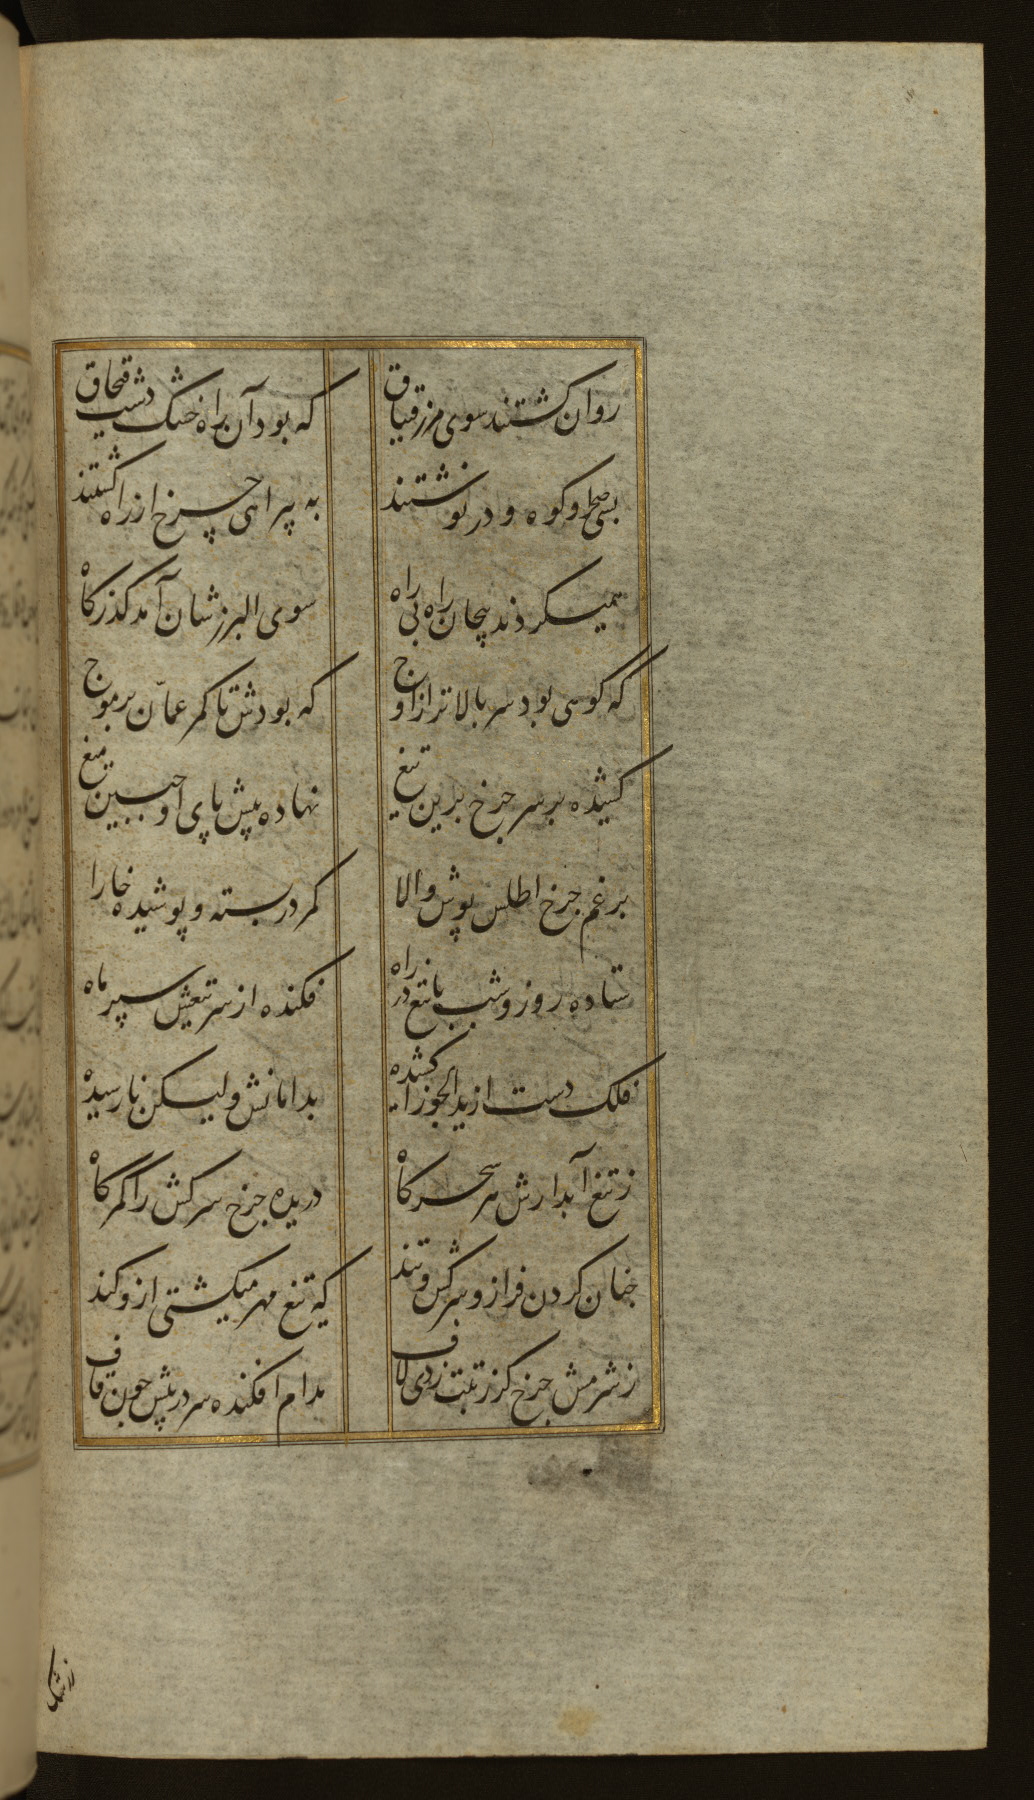 روان گشتند سوی مرز قپچاق
که بود آن راه خشک دشت قپچاق
بسی صحرا و کوه و در نوشتند
به پیراهی چرخ از راه گشتند
همیکردند پیچان راه بی راه
سوی البرزشان آمد گذرگاه
که کوهی بود سر بالاتر از اوج
که بودش تا کمر عمّان سر موج
کشیده بر سر چرخ برین تیغ
نهاده پیش پای او جبین میغ
برغم چرخ اطلس پوش والا
کمر در بسته و پوشیده خارا
ستاده روز و شب با تیغ در راه
فکنده از سر تیغش سپر ماه
فلک دست از ید الجوزا کشیده
بدامانش ولیکن نارسیده
ز تیغ آبدارش هر سحرگاه
دریده چرخ سرکش را کمرگاه
چنان کردن فراز و سرکش و تند
که تیغ مهر میگشتی ازو کند
ز شرمش چرخ کز رتبت زدی لاف
مدام افکنده سر در پیش چون قاف